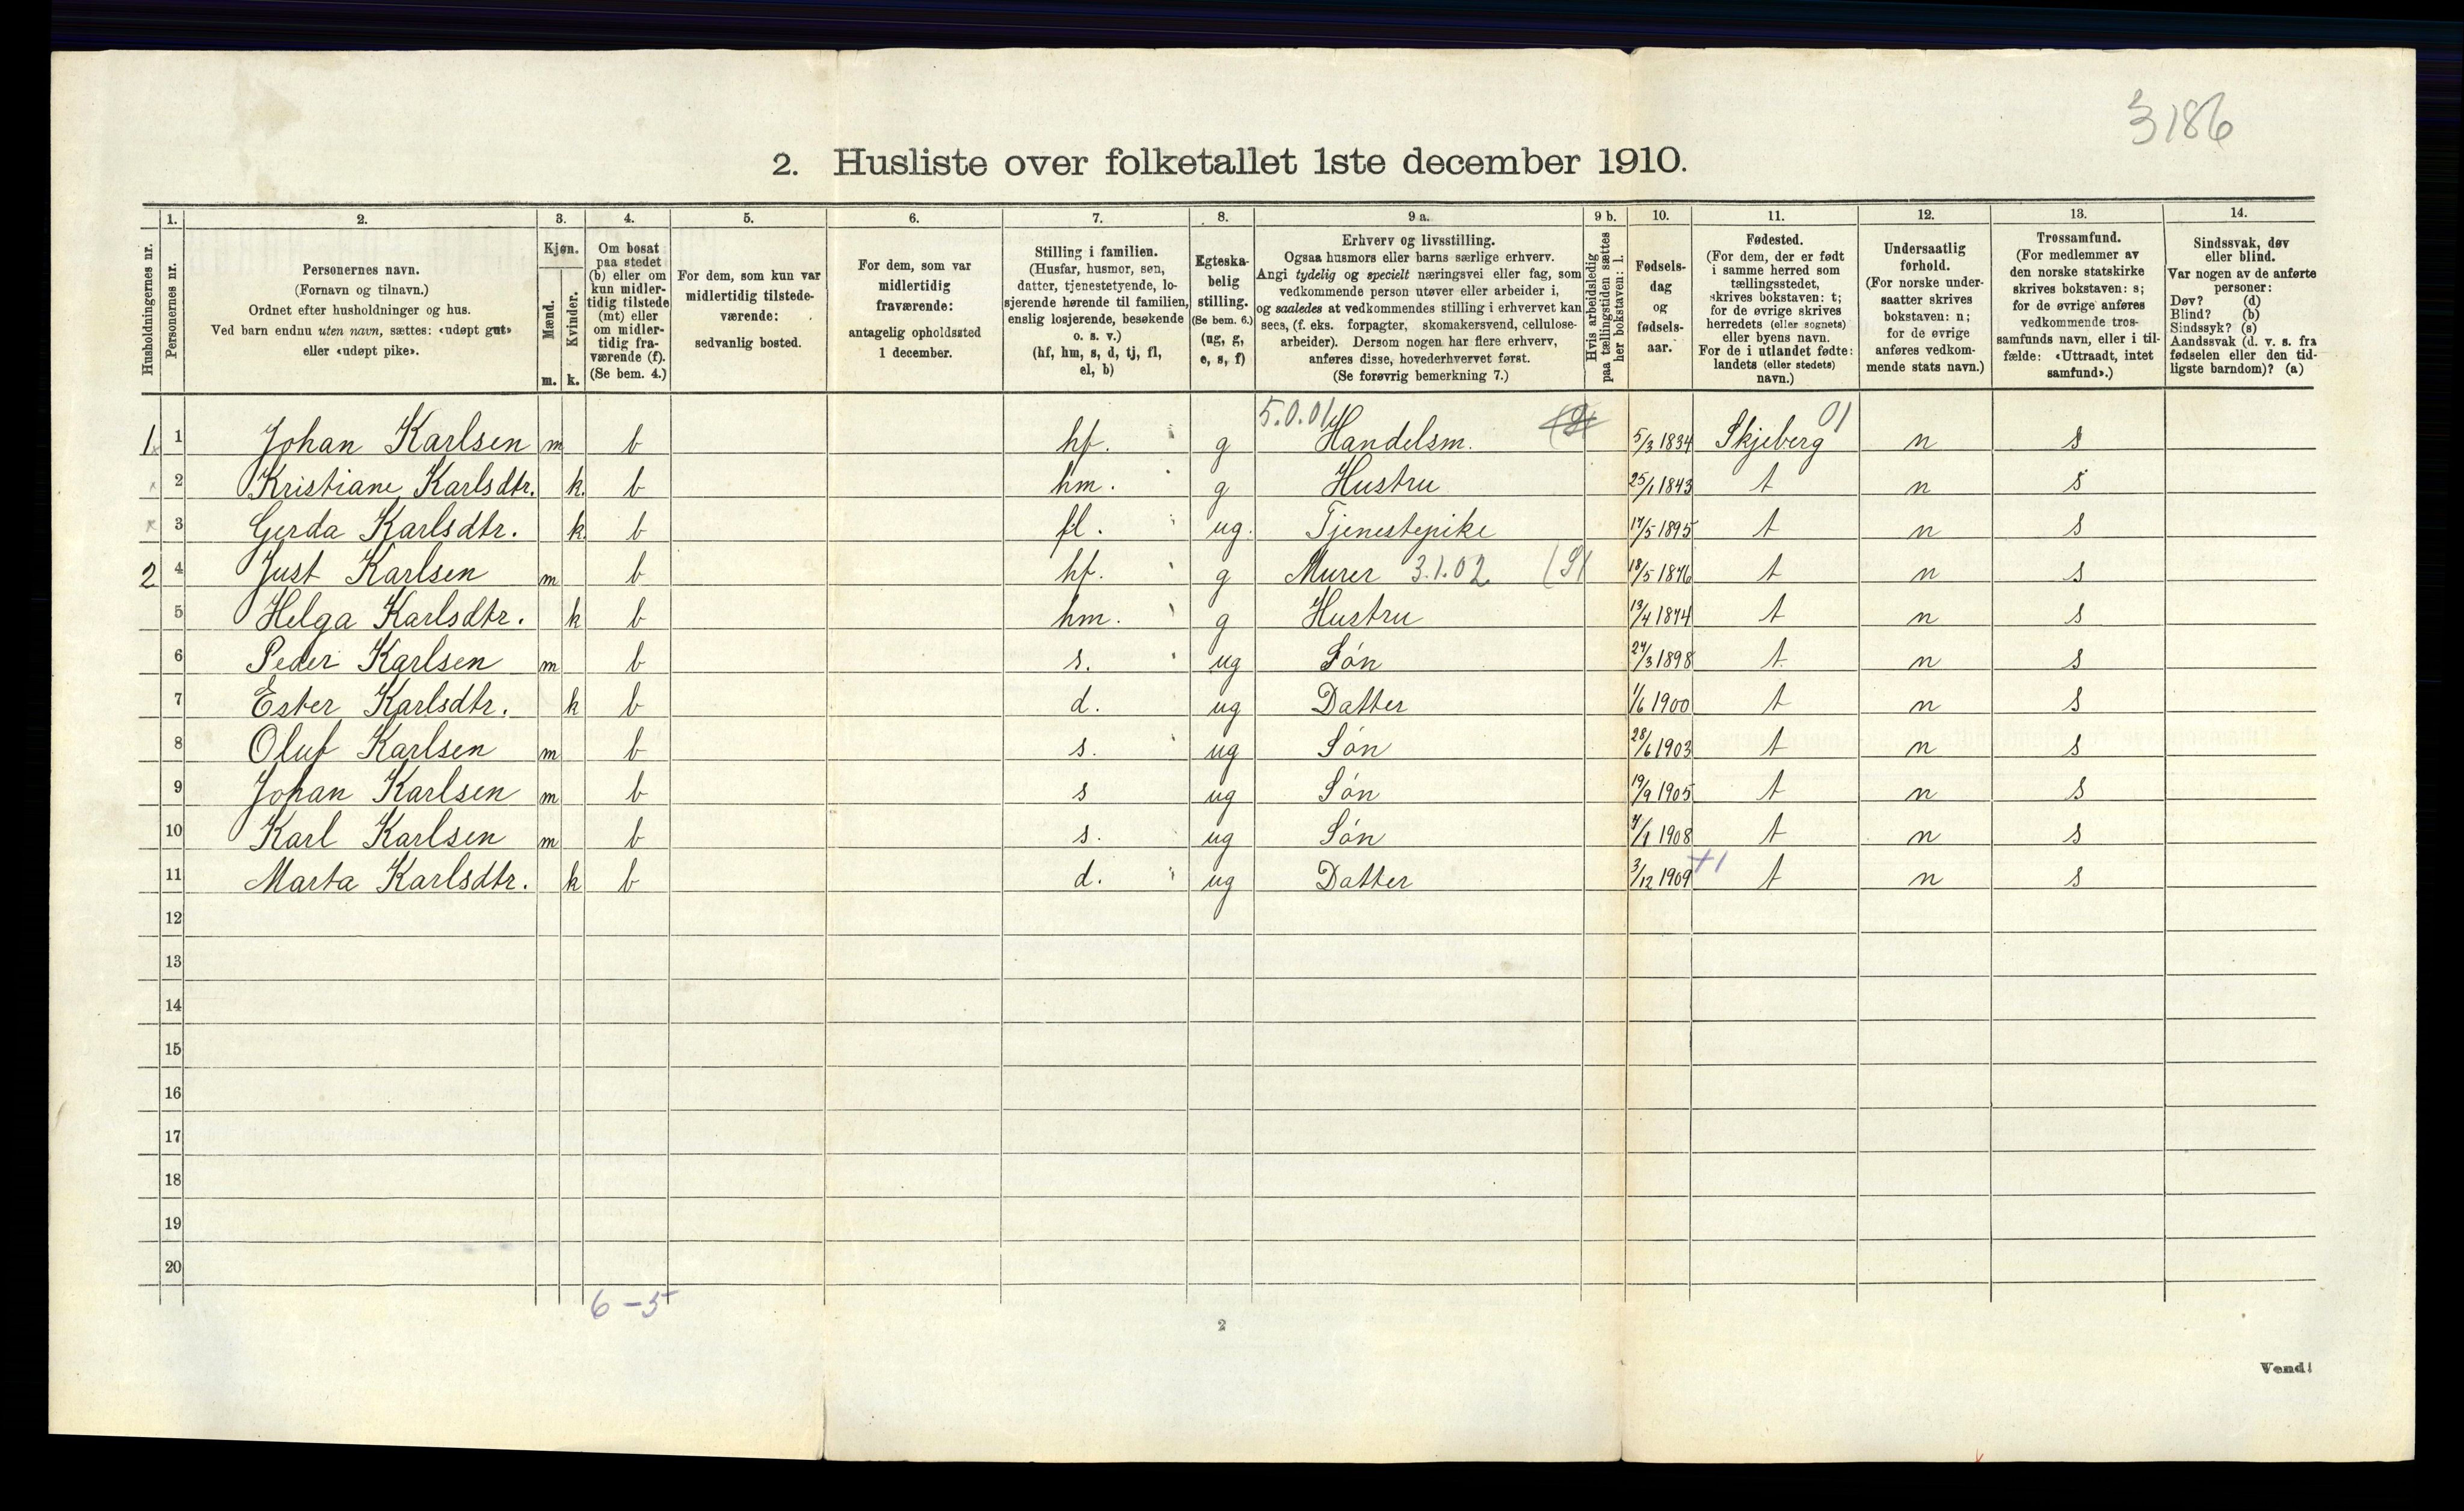 3186
2. Husliste over folketallet 1ste december 1910.
1. 2. 3. 4. 5. 6. 7. 8. 9 a. 9 b. 10. 11. 12. 13. 14.
Husholdningernes nr.
Personernes nr.
Personernes navn.
(Fornavn og tilnavn.)
Ordnet efter husholdninger og hus.
Ved barn endnu uten navn, sættes: «udøpt gut»
eller «udøpt pike».
Kjøn.
Mænd.
Kvinder.
m. k.
Om bosat
paa stedet
(b) eller om
kun midler-
tidig tilstede
(mt) eller
om midler-
tidig fra-
værende (f).
(Se bem. 4.)
For dem, som kun var
midlertidig tilstede-
værende:
sedvanlig bosted.
For dem, som var
midlertidig
fraværende:
antagelig opholdssted
1 december.
Stilling i familien.
(Husfar, husmor, søn,
datter, tjenestetyende, lo-
sjerende hørende til familien,
enslig losjerende, besøkende
o. s. v.)
(hf, hm, s, d, tj, fl,
el, b)
Egteska-
belig
stilling.
(Se bem. 6.)
(ug, g,
e, s, f)
Erhverv og livsstilling.
Ogsaa husmors eller barns særlige erhverv.
Angi tydelig og specielt næringsvei eller fag, som
vedkommende person utøver eller arbeider i,
og saaledes at vedkommendes stilling i erhvervet kan
sees, (f. eks. forpagter, skomakersvend, cellulose-
arbeider). Dersom nogen har flere erhverv,
anføres disse, hovederhvervet først.
(Se forøvrig bemerkning 7.)
Hvis arbeidsledig
paa tællingstiden sættes
her bokstaven: l.
Fødsels-
dag
og
fødsels-
aar.
Fødested.
(For dem, der er født
i samme herred som
tællingsstedet,
skrives bokstaven: t;
for de øvrige skrives
herredets (eller sognets)
eller byens navn.
For de i utlandet fødte:
landets (eller stedets)
navn.)
Undersaatlig
forhold.
(For norske under-
saatter skrives
bokstaven: n;
for de øvrige
anføres vedkom-
mende stats navn.)
Trossamfund.
(For medlemmer av
den norske statskirke
skrives bokstaven: s;
for de øvrige anføres
vedkommende tros-
samfunds navn, eller i til-
fælde: «Uttraadt, intet
samfund».)
Sindssvak, døv
eller blind.
Var nogen av de anførte
personer:
Døv? (d)
Blind? (b)
Sindssyk? (s)
Aandssvak (d. v. s. fra
fødselen eller den tid-
ligste barndom)? (a)
5.0.01 01
1 1 Johan Karlsen m b hf. g Handelsm. 5/3 1834 Skjeberg n s
2 Kristiane Karlsdtr. k. b hm. g Hustru 25/1 1843 t n s
3 Gerda Karlsdtr. k. b fl. ug. Tjenestepike 17/5 1895 t n s
2 4 Just Karlsen m b hf. g Murer 3.1.02 18/5 1876 t n s
5 Helga Karlsdtr. k b hm. g Hustru 13/4 1874 t n s
6 Peder Karlsen m b s. ug Søn 27/3 1898 t n s
7 Ester Karlsdtr. k b d. ug Datter 1/6 1900 t n s
8 Oluf Karlsen m b s. ug Søn 28/6 1903 t n s
9 Johan Karlsen m b s ug Søn 19/9 1905 t n s
10 Karl Karlsen m b s. ug Søn 7/1 1908 t n s
11 Marta Karlsdtr. k b d. ug Datter 3/12 1909 +1 t n s
12
13
14
15
16
17
18
19
20
6 - 5
2
Vend!